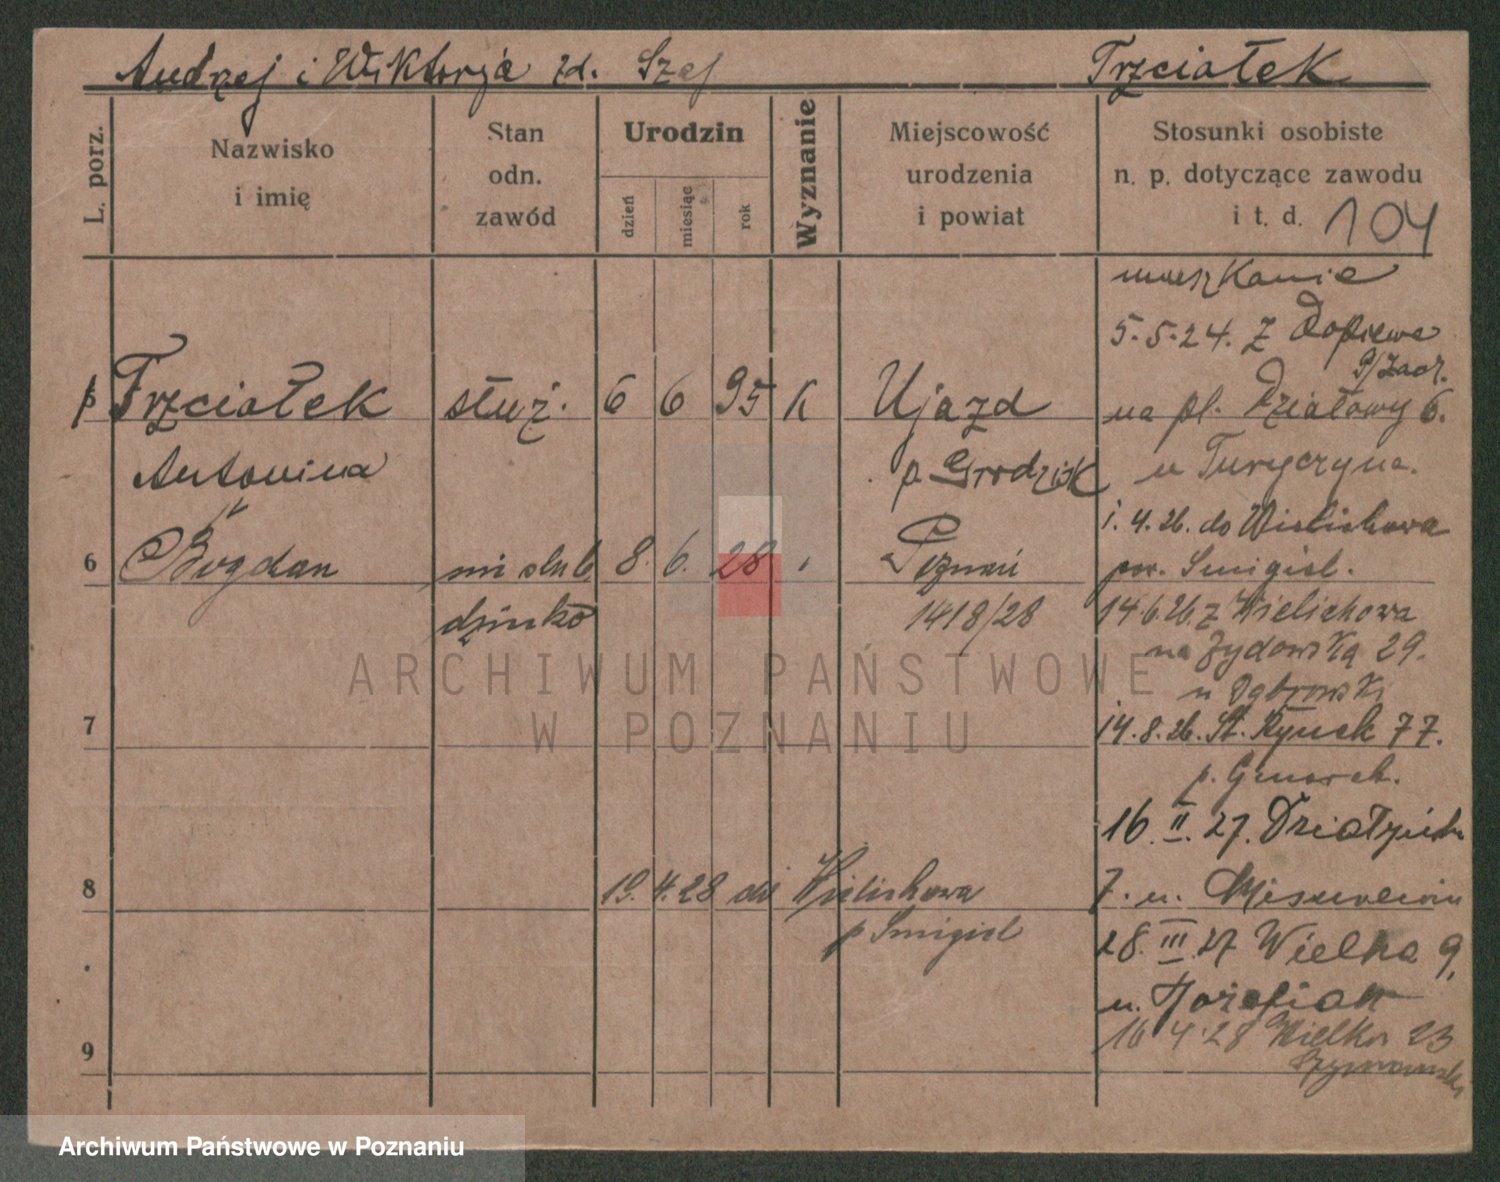 Andrzej i Wiktorja zd. Szaj Trzciałek
L. porz.
Nazwisko
i imię
Stan
odn.
zawód
Urodzin
dzień
miesiąc
rok
Wyznanie
Miejscowość
urodzenia
i powiat
Stosunki osobiste
n. p. dotyczące zawodu
i t. d. 104
mieszkanie
5.5.24. z Dopiewa
p/Zach.
5 Trzciałek służ. 6 6 95 K Ujazd na pl. Działowy 6.
Antonina p. Grodzisk u Turyczyna.
1.4.26. do Wielichowa
6 Bogdan nieślub. 8. 6. 28 Poznań pow. Smigiel.
dziecko 1418/28 14.6.26. z Wielichowa
na Żydowską 29.
u Dąbrowski
7 14.8.26. St. Rynek 77.
p.
16.II.27.
8 19. 4. 28 do Wielichowa 7. u.
p Smigiel
28.III.27 Wielka 9,
u.
16 4 28 Wielka 23
Szymański
9
ARCHIWUM PAŃSTWOWE
W POZNANIU
Archiwum Państwowe w Poznaniu